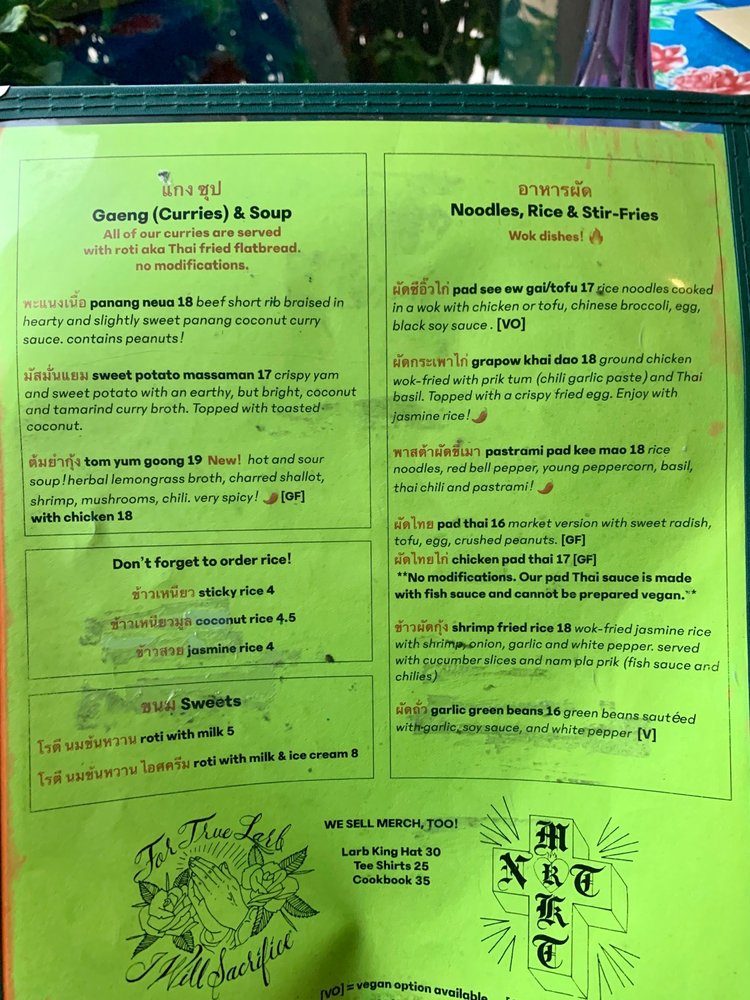 แกง ซุป
Gaeng (Curries) & Soup
All of our curries are served
with roti aka Thai fried flatbread.
no modifications.
พะแนงเนื้อ panang neua 18 beef short rib braised in
hearty and slightly sweet panang coconut curry
sauce. contains peanuts!
มัสมั่นแยม sweet potato massaman 17 crispy yam
and sweet potato with an earthy, but bright, coconut
and tamarind curry broth. Topped with toasted
coconut.
ต้มยำกุ้ง tom yum goong 19 New! hot and sour
soup! herbal lemongrass broth, charred shallot,
shrimp, mushrooms, chili. very spicy! [GF]
with chicken 18
Don't forget to order rice!
ข้าวเหนียว sticky rice 4
ข้าวเหนียวมูล coconut rice 4.5
ข้าวสวย jasmine rice 4
ขนม Sweets
โรตี นมข้นหวาน roti with milk 5
โรตี นมข้นหวาน ไอศครีม roti with milk & ice cream 8
อาหารผัด
Noodles, Rice & Stir-Fries
Wok dishes!
ผัดซีอิ๊วไก่ pad see ew gai/tofu 17 rice noodles cooked
in a wok with chicken or tofu, chinese broccoli, egg,
black soy sauce . [VO]
ผัดกระเพาไก่ grapow khai dao 18 ground chicken
wok-fried with prik tum (chili garlic paste) and Thai
basil. Topped with a crispy fried egg. Enjoy with
jasmine rice!
พาสต้าผัดขี้เมา pastrami pad kee mao 18 rice
noodles, red bell pepper, young peppercorn, basil,
thai chili and pastrami!
ผัดไทย pad thai 16 market version with sweet radish,
tofu, egg, crushed peanuts. [GF]
ผัดไทยไก่ chicken pad thai 17 [GF]
**No modifications. Our pad Thai sauce is made
with fish sauce and cannot be prepared vegan.**
ข้าวผัดกุ้ง shrimp fried rice 18 wok-fried jasmine rice
with shrimp, onion, garlic and white pepper. served
with cucumber slices and nam pla prik (fish sauce and
chilies)
ผัดถั่ว garlic green beans 16 green beans sautéed
with garlic, soy sauce, and white pepper [V]
For True Larb
I Will Sacrifice
WE SELL MERCH, TOO!
Larb King Hat 30
Tee Shirts 25
Cookbook 35
M
N R T
K
T
[VO] = vegan option available